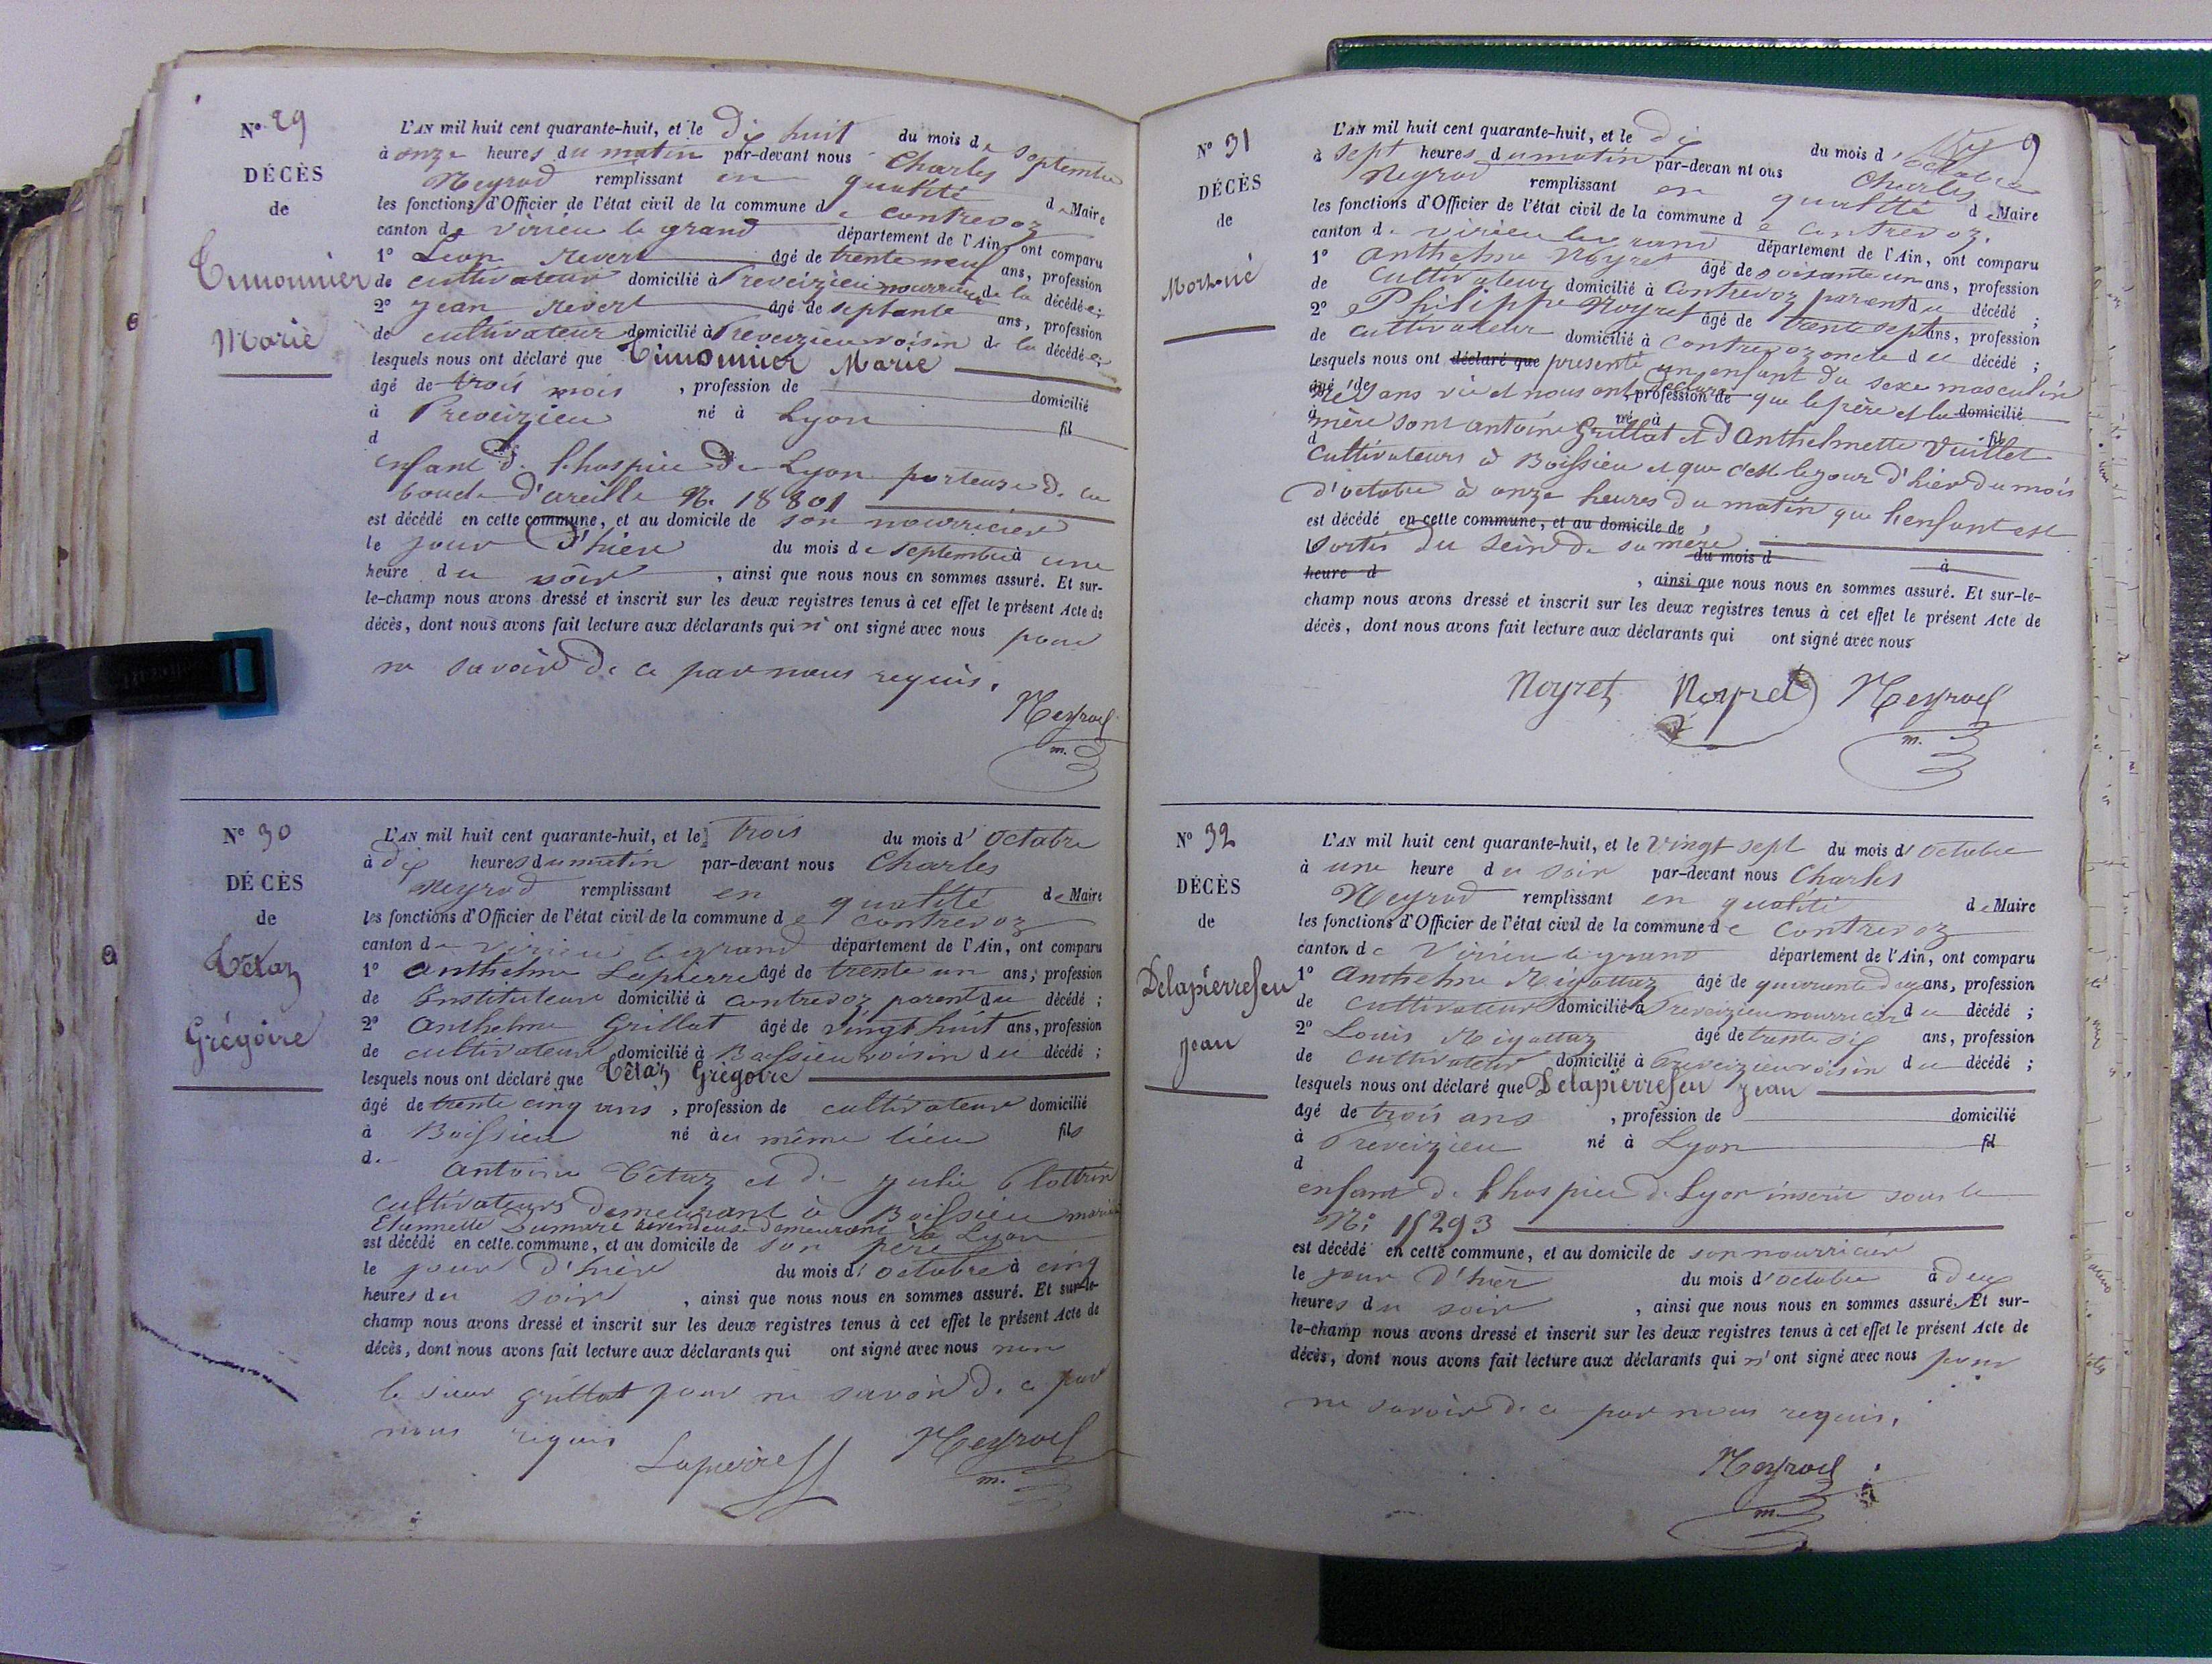 N° 29
DÉCÈS
de
Timonnier
Marie
L'AN mil huit cent quarante-huit, et le dix huit du mois de septembre
à onze heures du matin par-devant nous Charles
Neyrod remplissant en qualité de Maire
les fonctions d'Officier de l'état civil de la commune de Contrevoz
canton de Virieu le grand département de l'Ain, ont comparu
1° Léon Revert âgé de trente neuf ans, profession
de cultivateur domicilié à Preveizieu nourricier de la décédée;
2° Jean Revert âgé de septante ans, profession
de cultivateur domicilié à Preveizieu voisin de la décédée;
lesquels nous ont déclaré que Timonnier Marie
âgé de trois mois , profession de domicilié
à Preveizieu né à Lyon fil
d
enfant de l'hospice de Lyon porteuse de la
boucle d'oreille N. 18801
est décédé en cette commune, et au domicile de son nourricier
le jour d'hier du mois de septembre à une
heure du soir , ainsi que nous nous en sommes assuré. Et sur-
le-champ nous avons dressé et inscrit sur les deux registres tenus à cet effet le présent Acte de
décès, dont nous avons fait lecture aux déclarants qui n'ont signé avec nous pour
ne savoir de ce par nous requis.
Neyrod
m.
N° 30
DÉCÈS
de
Têtaz
Grégoire
L'AN mil huit cent quarante-huit, et le trois du mois d'Octobre
à dix heures du matin par-devant nous Charles
Neyrod remplissant en qualité de Maire
les fonctions d'Officier de l'état civil de la commune de Contrevoz
canton de Virieu le grand département de l'Ain, ont comparu
1° Anthelme Lapierre âgé de trente un ans, profession
de Instituteur domicilié à Contrevoz parent du décédé ;
2° Anthelme Grillat âgé de vingt huit ans, profession
de cultivateur domicilié à Boissieu voisin du décédé ;
lesquels nous ont déclaré que Têtaz Grégoire
âgé de trente cinq ans , profession de cultivateur domicilié
à Boissieu né au même lieu fils
d.
Antoine Têtaz et de Julie
cultivateurs demeurant à Boissieu
Etiennette demeurant à Lyon
est décédé en cette commune, et au domicile de son père
le jour d'hier du mois d'octobre à cinq
heures du soir , ainsi que nous nous en sommes assuré. Et sur-le-
champ nous avons dressé et inscrit sur les deux registres tenus à cet effet le présent Acte de
décès, dont nous avons fait lecture aux déclarants qui ont signé avec nous non
le sieur Grillat pour ne savoir de ce par
nous requis
Lapierre Neyrod
m.
9
N° 31
DÉCÈS
de
Mort-né
L'AN mil huit cent quarante-huit, et le dix du mois d'octobre
à sept heures du matin par-devan nt ous Charles
Neyrod remplissant en qualité de Maire
les fonctions d'Officier de l'état civil de la commune de Contrevoz.
canton de Virieu le grand département de l'Ain, ont comparu
1° Anthelme Noyret âgé de soixante un ans, profession
de cultivateur domicilié à Contrevoz parent du décédé ;
2° Philippe Noyret âgé de trente sept ans, profession
de cultivateur domicilié à Contrevoz oncle du décédé ;
lesquels nous ont déclaré que présenté un enfant du sexe masculin
âgé de né sans vie et nous ont déclaré profession de que le père et la domicilié
à mère sont Antoine Grillat et d'Anthelmette Vuillet né à fil
d cultivateurs à Boissieu et que c'est le jour d'hier du mois
d'octobre à onze heures du matin que l'enfant est
est décédé en cette commune, et au domicile de
sorti du sein de sa mère du mois d à
heure d , ainsi que nous nous en sommes assuré. Et sur-le-
champ nous avons dressé et inscrit sur les deux registres tenus à cet effet le présent Acte de
décès, dont nous avons fait lecture aux déclarants qui ont signé avec nous
Noyret Noyret Neyrod
m.
N° 32
DÉCÈS
de
Delapierrefeu
Jean
L'AN mil huit cent quarante-huit, et le vingt sept du mois d'octobre
à une heure du soir par-devant nous Charles
Neyrod remplissant en qualité de Maire
les fonctions d'Officier de l'état civil de la commune de Contrevoz
canton de Virieu le grand département de l'Ain, ont comparu
1° Anthelme âgé de quarante deux ans, profession
de cultivateur domicilié à Preveizieu nourricier du décédé ;
2° Louis âgé de trente six ans, profession
de cultivateur domicilié à Preveizieu voisin du décédé ;
lesquels nous ont déclaré que Delapierrefeu Jean
âgé de trois ans , profession de domicilié
à Preveizieu né à Lyon fil
d
enfant de l'hospice de Lyon inscrit sous le
N° 15293
est décédé en cette commune, et au domicile de son nourricier
le jour d'hier du mois d'octobre à deux
heures du soir , ainsi que nous nous en sommes assuré. Et sur-
le-champ nous avons dressé et inscrit sur les deux registres tenus à cet effet le présent Acte de
décès, dont nous avons fait lecture aux déclarants qui n'ont signé avec nous pour
ne savoir de ce par nous requis.
Neyrod
m.